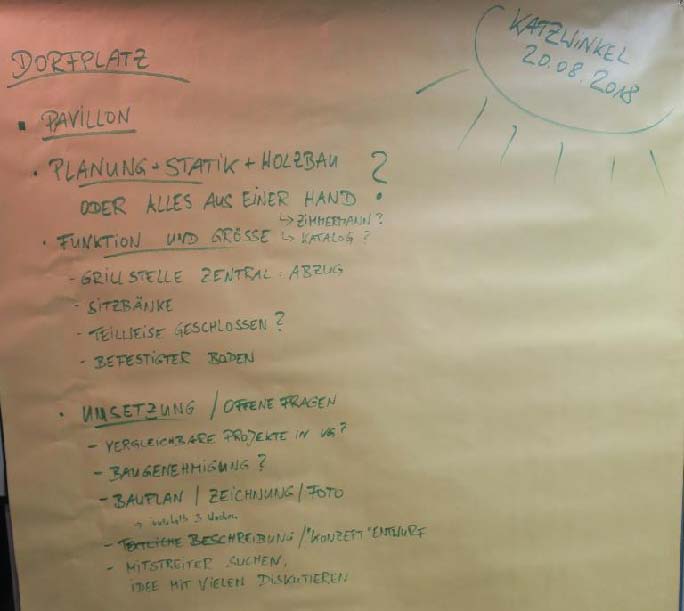 KATZWINKEL
20.08.2018
DORFPLATZ
▪ PAVILLON
• PLANUNG + STATIK + HOLZBAU ?
ODER ALLES AUS EINER HAND
↳ ZIMMERMANN?
• FUNKTION UND GRÖSSE ↳ KATALOG?
- GRILLSTELLE ZENTRAL + ABZUG
- SITZBÄNKE
- TEILWEISE GESCHLOSSEN?
- BEFESTIGTER BODEN
• UMSETZUNG / OFFENE FRAGEN
- VERGLEICHBARE PROJEKTE IN VG?
- BAUGENEHMIGUNG?
- BAUPLAN / ZEICHNUNG / FOTO
→ innerhalb 3 Wochen
- TEXTLICHE BESCHREIBUNG / "KONZEPT" ENTWURF
- MITSTREITER SUCHEN,
IDEE MIT VIELEN DISKUTIEREN